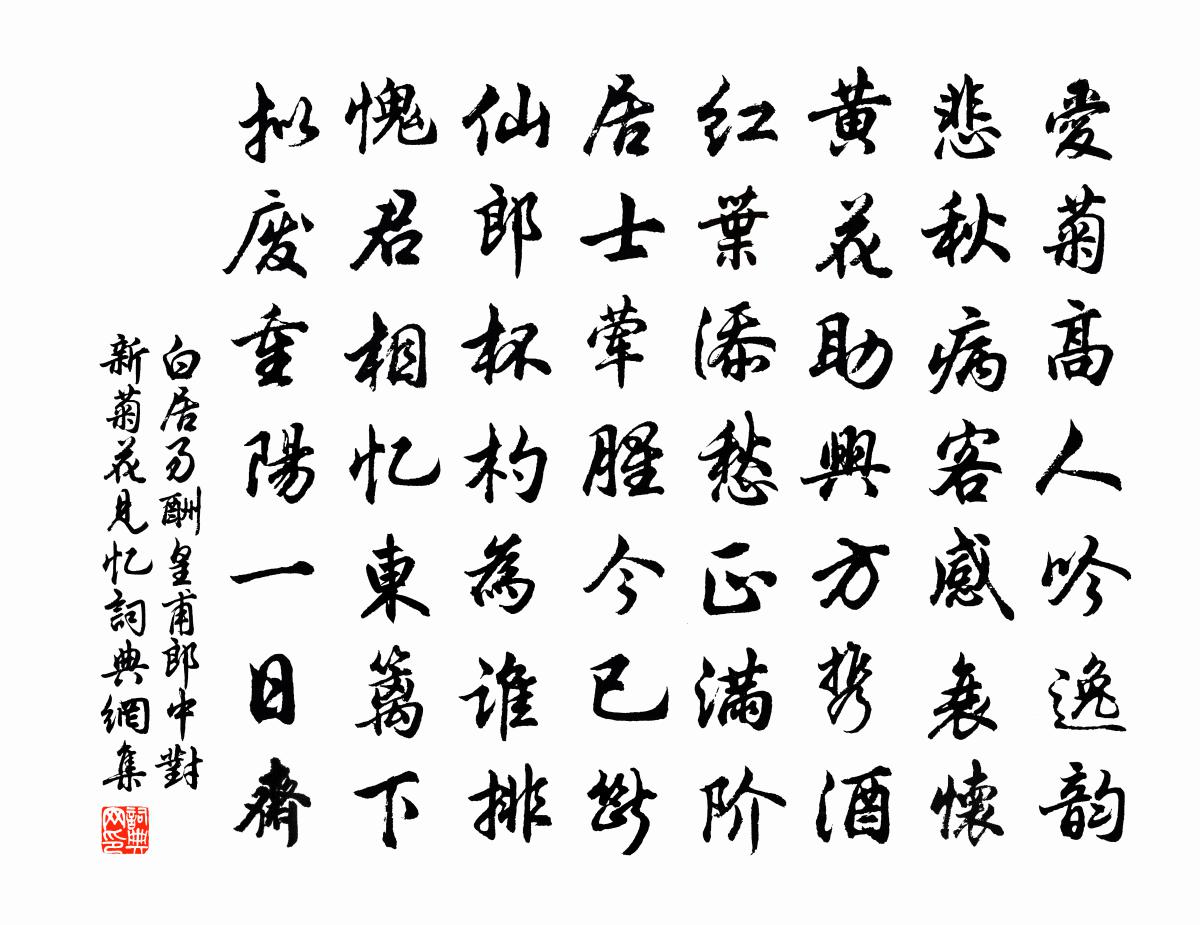 愛菊高人吟逸韵
悲秋病客感衰懷
黄花助興方携酒
红葉添愁正滿阶
居士荤腥今已断
仙郎杯杓為誰排
愧君相忆東篱下
拟废重陽一日齋
白居易酬皇甫郎中對
新菊花見忆詞典網集
詞典
网印